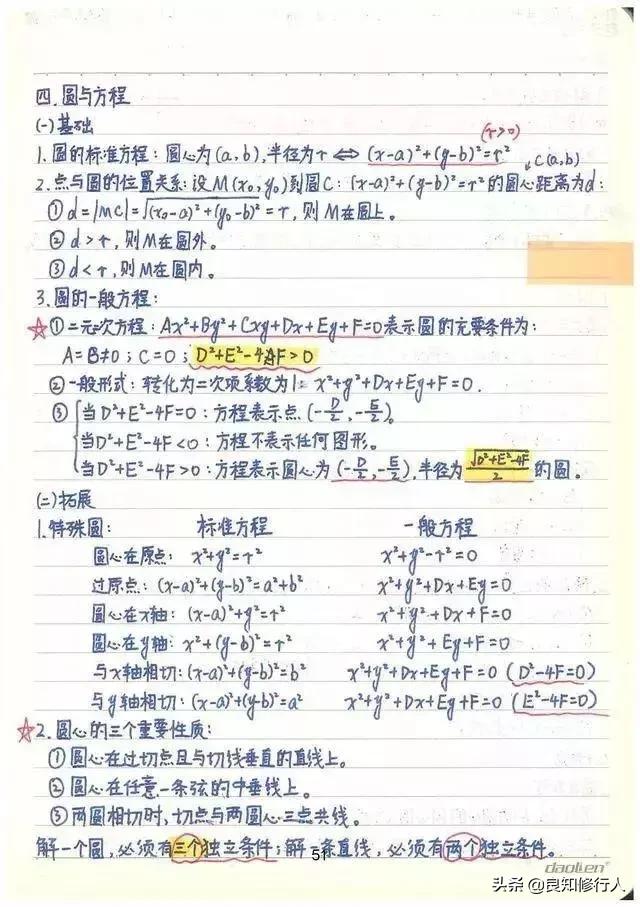 四.圆与方程
(一)基础
(r>0)
1.圆的标准方程：圆心为(a,b),半径为r⇔(x-a)²+(y-b)²=r²
C(a,b)
2.点与圆的位置关系:设M(x₀,y₀)到圆C：(x-a)²+(y-b)²=r²的圆心距离为d:
①d=|MC|=√(x₀-a)²+(y₀-b)²=r，则M在圆上。
②d>r，则M在圆外。
③d<r，则M在圆内。
3.圆的一般方程：
☆①二元二次方程：Ax²+By²+Cxy+Dx+Ey+F=0表示圆的充要条件为：
A=B≠0；C=0；D²+E²-4AF>0
②一般形式：转化为二次项系数为1=x²+y²+Dx+Ey+F=0.
③{当D²+E²-4F=0：方程表示点(-D/2,-E/2)。
当D²+E²-4F<0：方程不表示任何图形。
当D²+E²-4F>0：方程表示圆心为(-D/2,-E/2),半径为√D²+E²-4F/2的圆。
(二)拓展
1.特殊圆： 标准方程 一般方程
圆心在原点：x²+y²=r² x²+y²-r²=0
过原点：(x-a)²+(y-b)²=a²+b² x²+y²+Dx+Ey=0
圆心在x轴：(x-a)²+y²=r² x²+y²+Dx+F=0
圆心在y轴：x²+(y-b)²=r² x²+y²+Ey+F=0
与x轴相切:(x-a)²+(y-b)²=b² x²+y²+Dx+Ey+F=0(D²-4F=0)
与y轴相切:(x-a)²+(y-b)²=a² x²+y²+Dx+Ey+F=0(E²-4F=0)
☆2.圆心的三个重要性质：
①圆心在过切点且与切线垂直的直线上。
②圆心在任意一条弦的中垂线上。
③两圆相切时,切点与两圆心三点共线。
解一个圆,必须有三个独立条件;解一条直线,必须有两个独立条件。
51
daolien
头条 @良知修行人